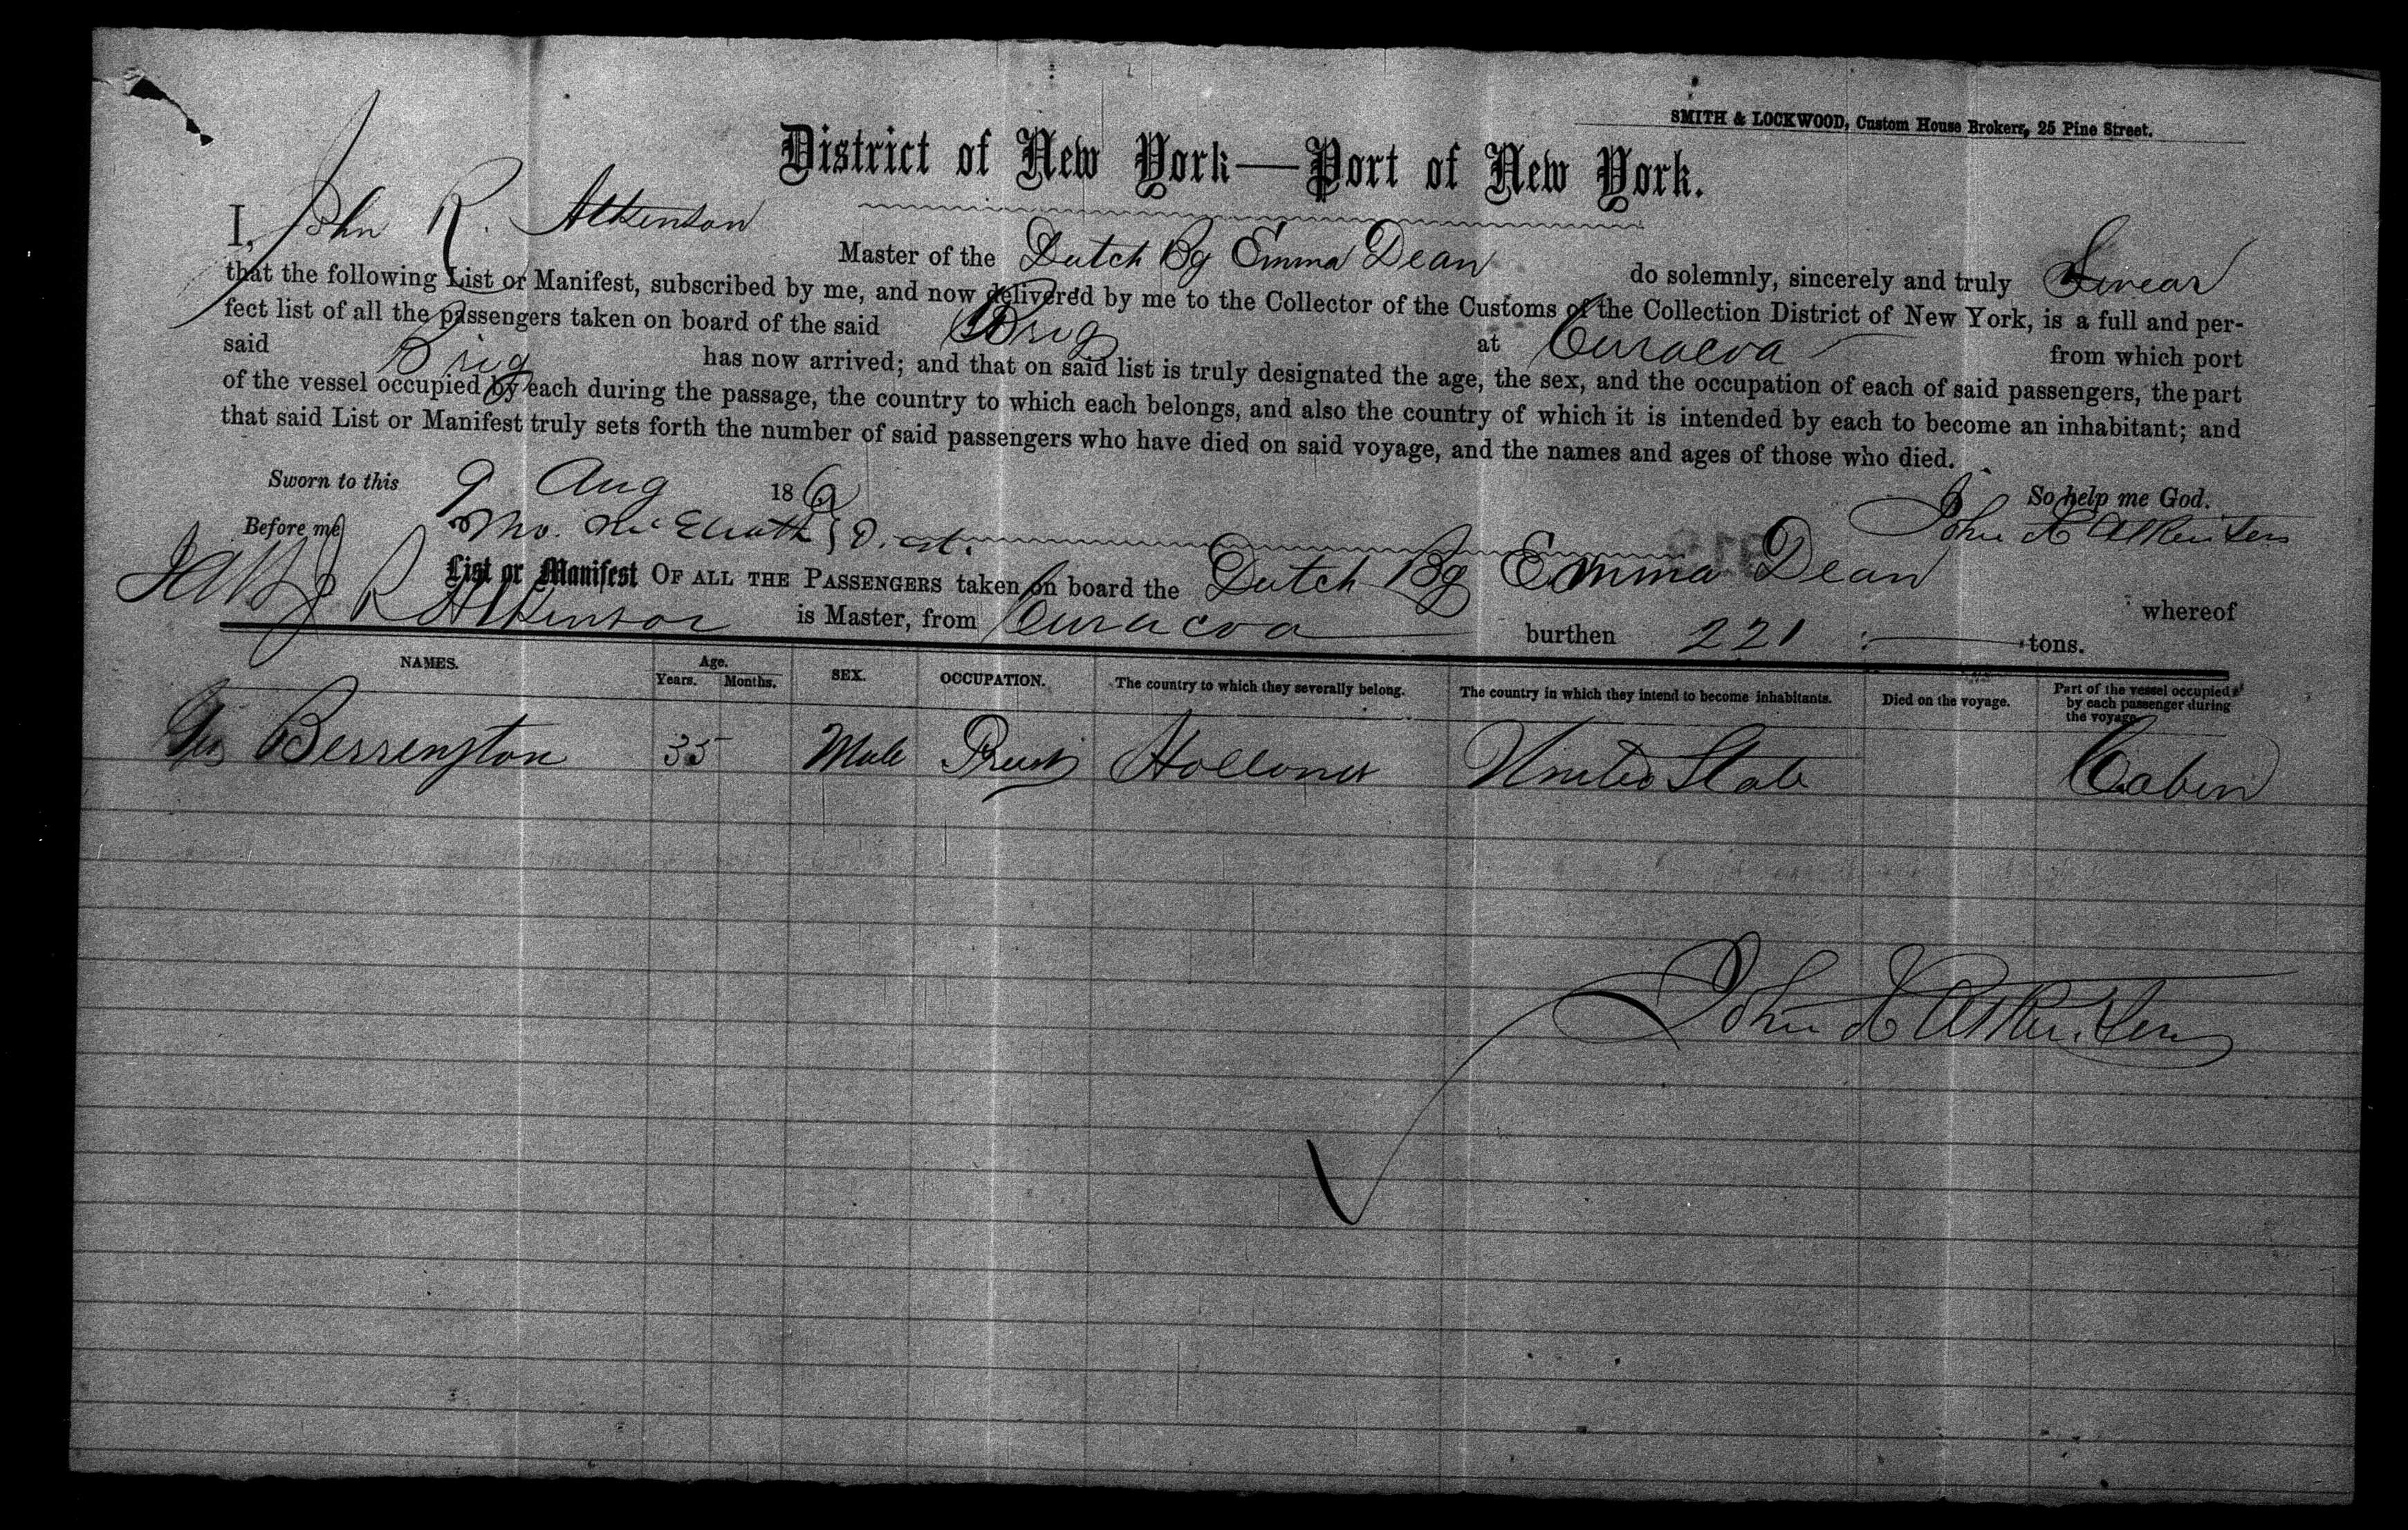 SMITH & LOCKWOOD, Custom House Brokers, 25 Pine Street.
District of New York—Port of New York.
I, John R. Atkinson Master of the Dutch Bg Emma Dean do solemnly, sincerely and truly Swear
that the following List or Manifest, subscribed by me, and now delivered by me to the Collector of the Customs of the Collection District of New York, is a full and per-
fect list of all the passengers taken on board of the said Brig at Curacoa from which port
said Brig has now arrived; and that on said list is truly designated the age, the sex, and the occupation of each of said passengers, the part
of the vessel occupied by each during the passage, the country to which each belongs, and also the country of which it is intended by each to become an inhabitant; and
that said List or Manifest truly sets forth the number of said passengers who have died on said voyage, and the names and ages of those who died.
Sworn to this 9 Aug 186 So help me God.
Before me John R Atkinson
List or Manifest OF ALL THE PASSENGERS taken on board the Dutch Bg Emma Dean whereof
J R Atkinson is Master, from Curacoa burthen 221 tons.
NAMES. Age. Years. Months. SEX. OCCUPATION. The country to which they severally belong. The country in which they intend to become inhabitants. Died on the voyage. Part of the vessel occupied by each passenger during the voyage.
Berrengton 35 Male Priest Holland United State Cabin
John R Atkinson